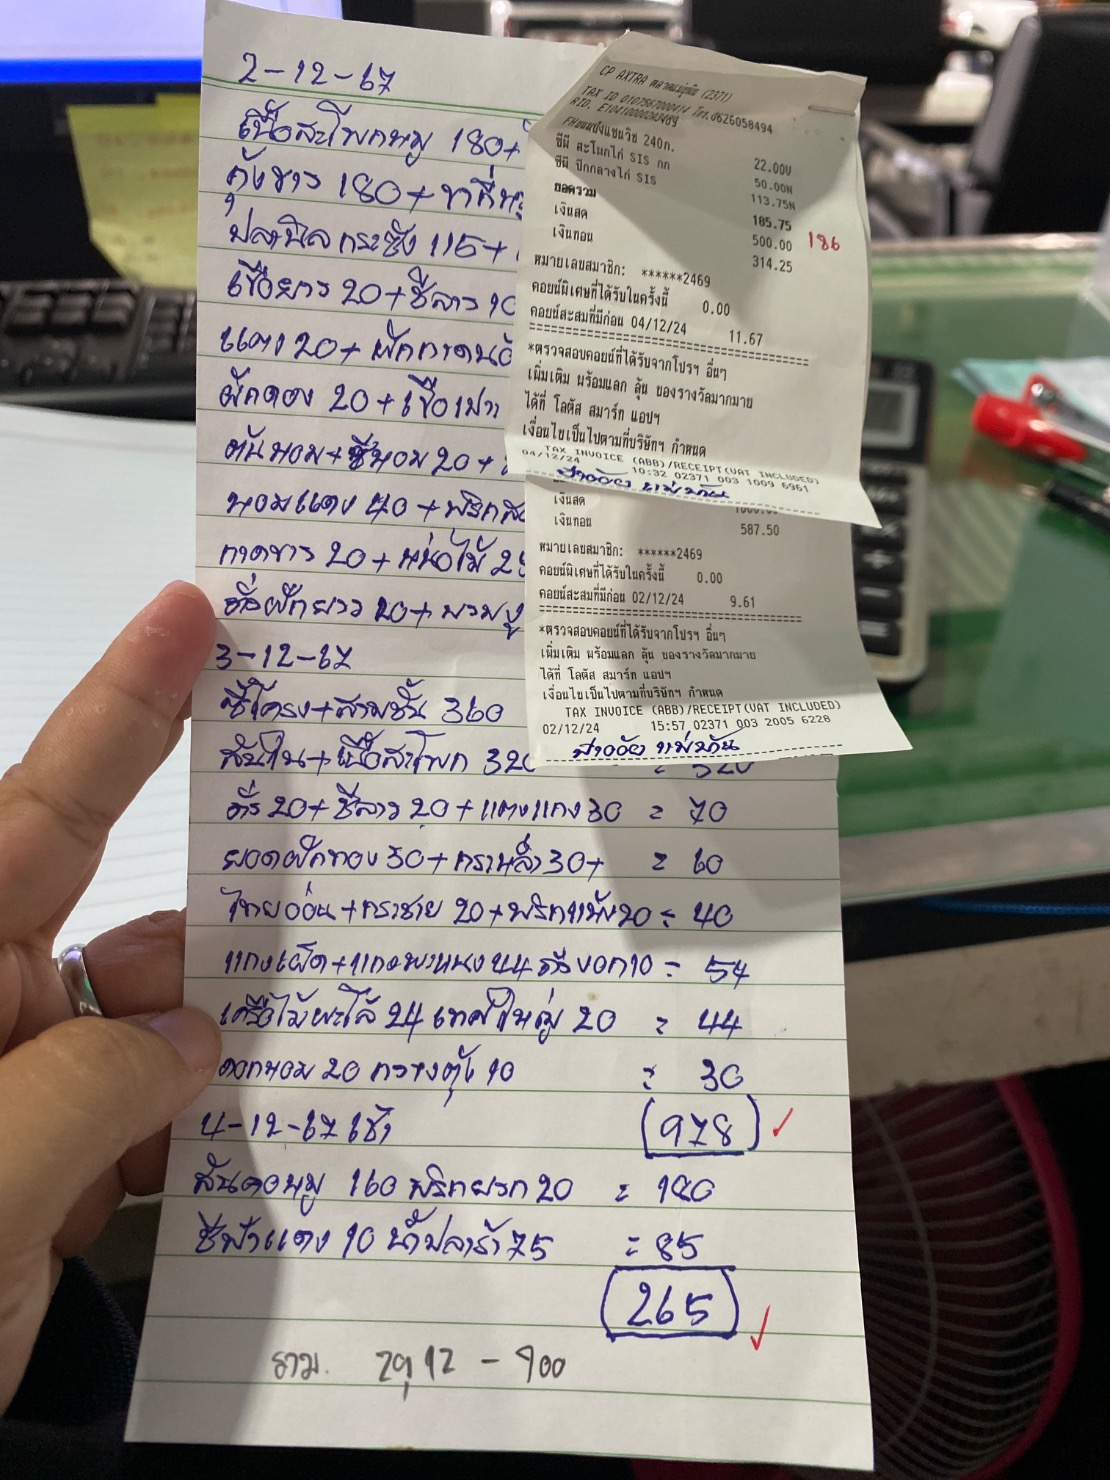 2-12-67
เนื้อสะโพกหมู 180+
กุ้งขาว 180+
ปลานิลกระชัง 115+
เขือยาว 20+ชีลาว 10
แตง 20+ผักกาด
ผักดอง 20+เขือเปาะ
ต้นหอม+ชีหอม 20+
หอมแดง 40+พริก
กาดขาว 20+หน่อไม้
ถั่วฝักยาว 20+
3-12-67
ซี่โครง+สามชั้น 360
สันใน+เนื้อสะโพก 320 = 320
ถั่ว 20+ชีลาว 20+แตงแกง 30 = 70
ยอดฝักทอง 30+กะหล่ำ 30+ = 60
ไทยอ่อน+กระชาย 20+พริกแห้ง 20 = 40
แกงเผ็ด+แกงพะแนง 44 ถั่วงอก 10 = 54
เครือไม้พะโล้ 24 เทศใหญ่ 20 = 44
ดอกหอม 20 กวางตุ้ง 10 = 30
4-12-67 เช้า (978)
สันคอหมู 160 พริกหยวก 20 = 180
ชีฟ้าแดง 10 น้ำปลาร้า 75 = 85
(265)
รวม. 2912 - 900
CP AXTRA (2371)
TAX ID 0107567000414 โทร.0626058494
RID. E10410000
ขนมปังแซนวิช 240ก. 22.00V
ซีพี สะโพกไก่ SIS กก 50.00N
ซีพี ปีกกลางไก่ SIS 113.75N
ยอดรวม 185.75 186
เงินสด 500.00
เงินทอน 314.25
หมายเลขสมาชิก: ******2469
คอยน์พิเศษที่ได้รับในครั้งนี้ 0.00
คอยน์สะสมที่มีก่อน 04/12/24 11.67
*ตรวจสอบคอยน์ที่ได้รับจากโปรฯ อื่นๆ
เพิ่มเติม พร้อมแลก ลุ้น ของรางวัลมากมาย
ได้ที่ โลตัส สมาร์ท แอปฯ
เงื่อนไขเป็นไปตามที่บริษัทฯ กำหนด
TAX INVOICE (ABB)/RECEIPT(VAT INCLUDED)
04/12/24 10:32 02371 003 1009 6961
เงินสด 1000.00
เงินทอน 587.50
หมายเลขสมาชิก: ******2469
คอยน์พิเศษที่ได้รับในครั้งนี้ 0.00
คอยน์สะสมที่มีก่อน 02/12/24 9.61
*ตรวจสอบคอยน์ที่ได้รับจากโปรฯ อื่นๆ
เพิ่มเติม พร้อมแลก ลุ้น ของรางวัลมากมาย
ได้ที่ โลตัส สมาร์ท แอปฯ
เงื่อนไขเป็นไปตามที่บริษัทฯ กำหนด
TAX INVOICE (ABB)/RECEIPT(VAT INCLUDED)
02/12/24 15:57 02371 003 2005 6228